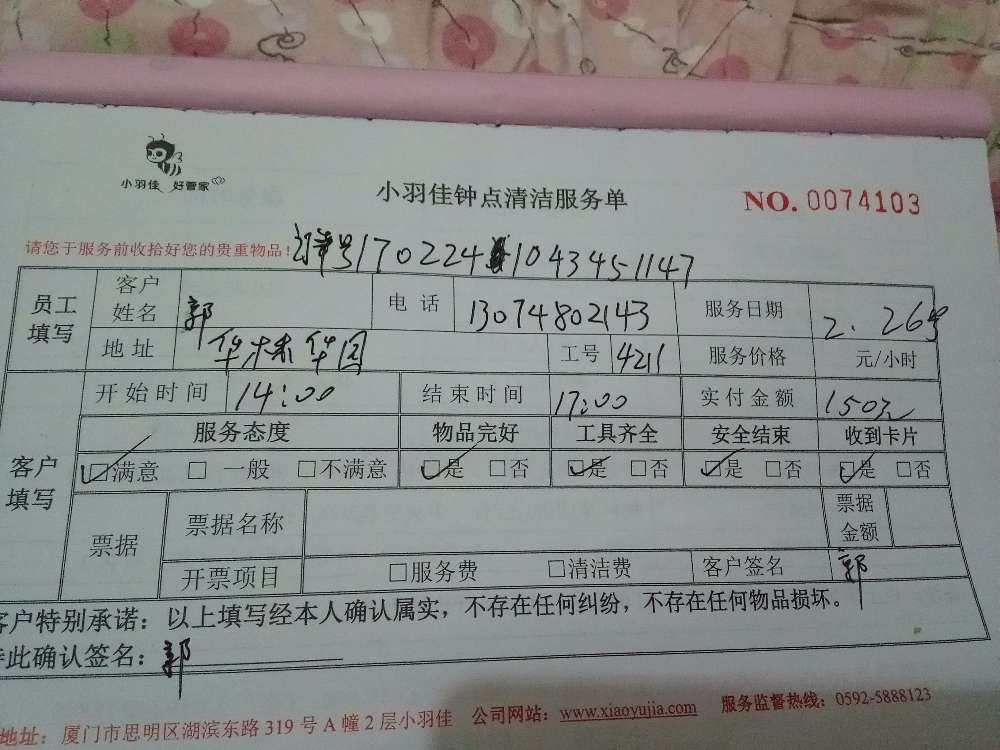 小羽佳 好管家
小羽佳钟点清洁服务单
NO. 0074103
请您于服务前收拾好您的贵重物品!
单号170224 1043451147
员工填写
客户姓名 郭 电话 13074802143 服务日期 2.26号
地址 华林华园 工号 4211 服务价格 元/小时
客户填写
开始时间 14:00 结束时间 17:00 实付金额 150元
服务态度 物品完好 工具齐全 安全结束 收到卡片
☑满意 □一般 □不满意 ☑是 □否 ☑是 □否 ☑是 □否 ☑是 □否
票据 票据名称 票据金额
开票项目 □服务费 □清洁费 客户签名 郭
客户特别承诺：以上填写经本人确认属实，不存在任何纠纷，不存在任何物品损坏。
此确认签名：郭
地址：厦门市思明区湖滨东路319号A幢2层小羽佳 公司网站：www.xiaoyujia.com 服务监督热线：0592-5888123